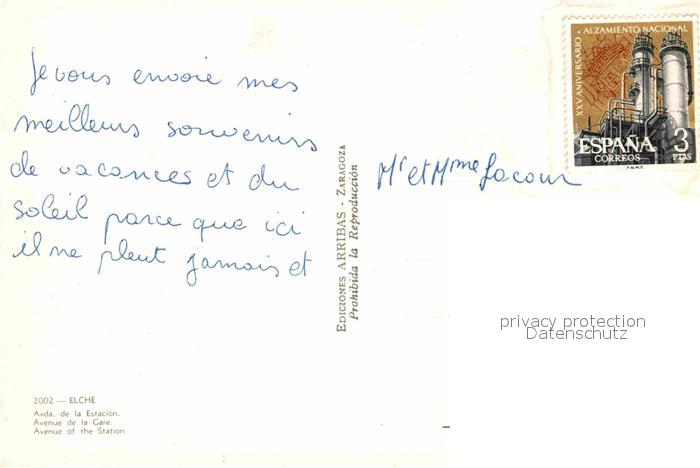 Je vous envoie mes
meilleurs souvenirs
de vacances et du
soleil parce que ici
il ne pleut jamais et
2002 — ELCHE
Avda. de la Estación.
Avenue de la Gare.
Avenue of the Station
EDICIONES ARRIBAS - ZARAGOZA
Prohibida la Reproducción
XXV ANIVERSARIO · ALZAMIENTO NACIONAL
ESPAÑA 3
CORREOS PTAS
F.N.M.T.
Mr et Mme Lacour
privacy protection
Datenschutz